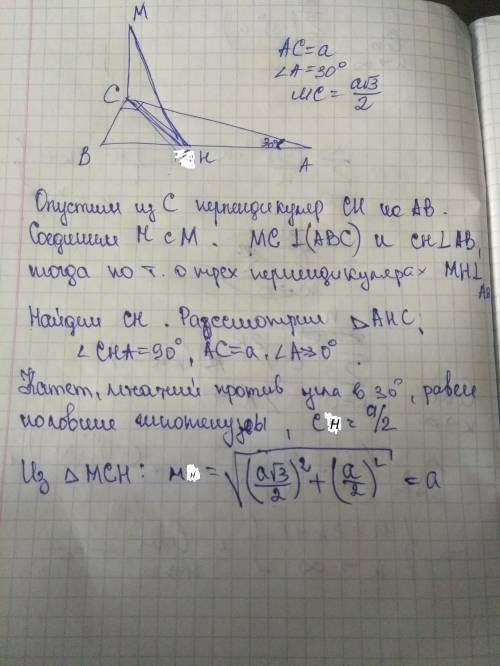 M
AC=a
∠A=30°
MC= a√3/2
C
30°
B
H
A
Опустим из C перпендикуляр CH на AB.
Соединим H с M. MC⊥(ABC) и CH⊥AB,
тогда по т. о трех перпендикулярах MH⊥
AB
Найдем CH. Рассмотрим △AHC,
∠CHA=90°, AC=a, ∠A=30°.
Катет, лежащий против угла в 30°, равен
половине гипотенузы, CH= a/2
Из △MCH: MH=√((a√3/2)²+(a/2)²) = a